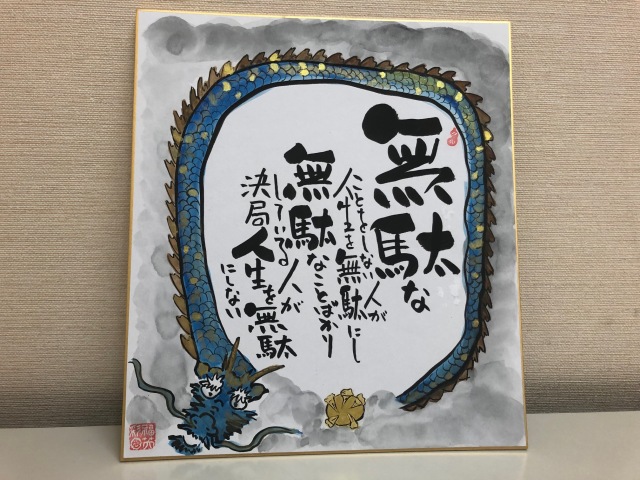 無駄な
ことをしない人が
人生を無駄にし
無駄なことばかり
している人が
決局人生を無駄
にしない